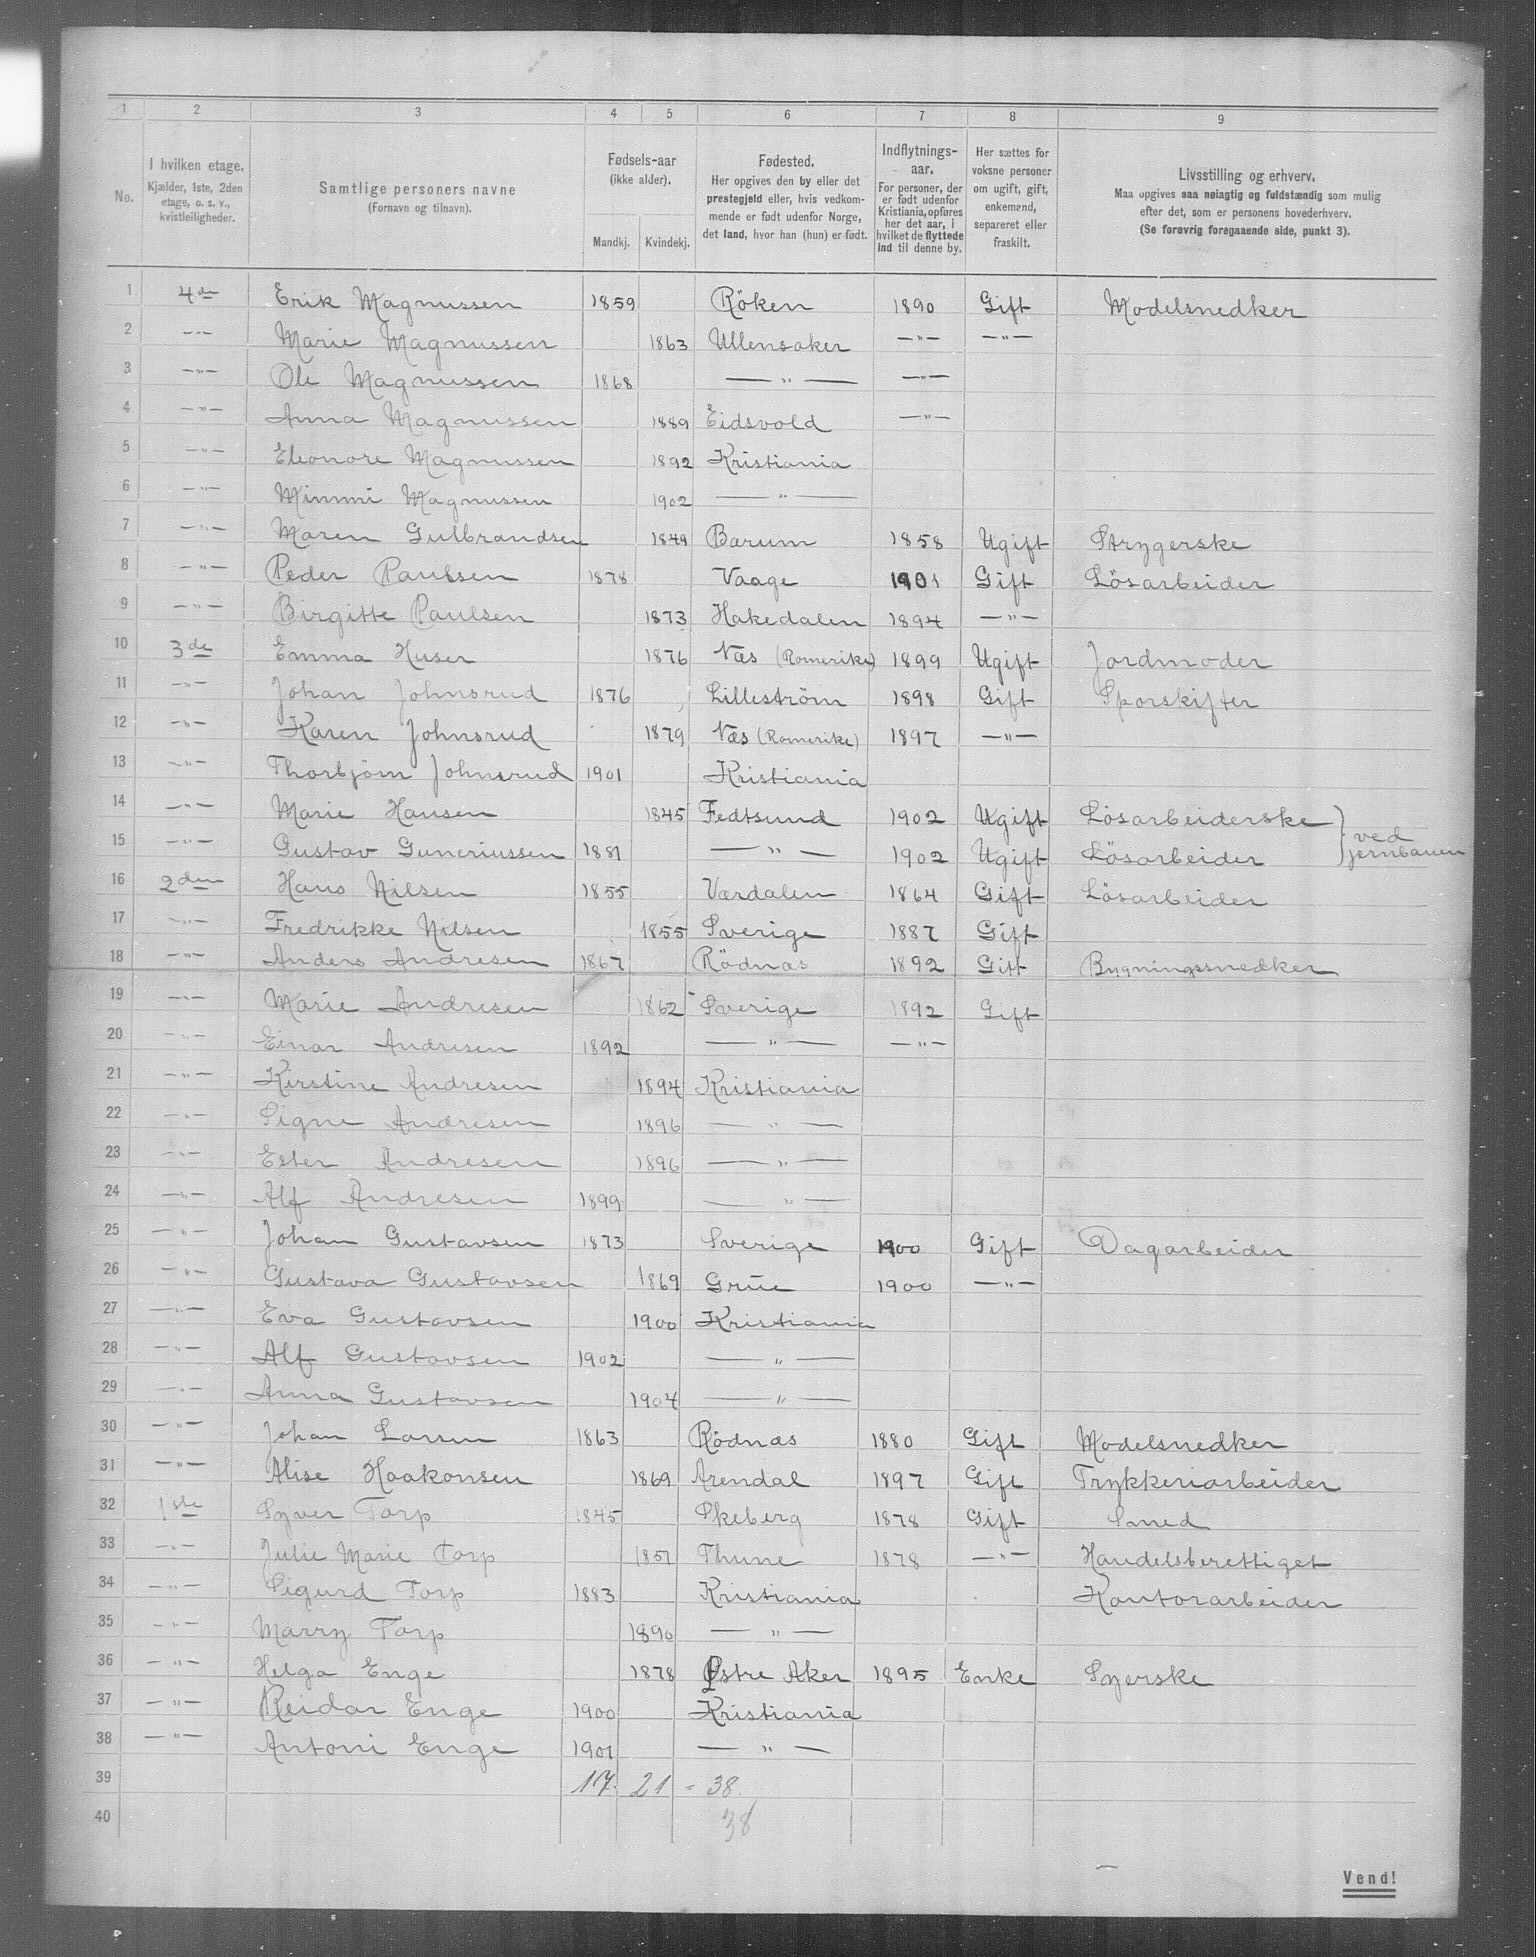 1 2 3 4 5 6 7 8 9
No.
I hvilken etage.
Kjælder, 1ste, 2den
etage, o. s. v.,
kvistleiligheder.
Samtlige personers navne
(Fornavn og tilnavn).
Fødsels-aar
(ikke alder).
Mandkj. Kvindekj.
Fødested.
Her opgives den by eller det
prestegjeld eller, hvis vedkom-
mende er født udenfor Norge,
det land, hvor han (hun) er født.
Indflytnings-
aar.
For personer, der
er født udenfor
Kristiania, opføres
her det aar, i
hvilket de flyttede
ind til denne by.
Her sættes for
voksne personer
om ugift, gift,
enkemand,
separeret eller
fraskilt.
Livsstilling og erhverv.
Maa opgives saa nøiagtig og fuldstændig som mulig
efter det, som er personens hovederhverv.
(Se forøvrig foregaaende side, punkt 3).
1 4de Erik Magnussen 1859 Röken 1890 Gift Modelsnedker
2 —"— Marie Magnussen 1863 Ullensaker —"— —"—
3 —"— Ole Magnussen 1868 —"— —"—
4 —"— Anna Magnussen 1889 Eidsvold —"—
5 —"— Eleonore Magnussen 1892 Kristiania
6 —"— Mimmi Magnussen 1902 —"—
7 —"— Maren Gulbrandsen 1849 Barum 1858 Ugift Strygerske
8 —"— Peder Paulsen 1878 Vaage 1901 Gift Lösarbeider
9 —"— Birgitte Paulsen 1873 Hakedalen 1894 —"—
10 3de Emma Huser 1876 Næs (Romerike) 1899 Ugift Jordmoder
11 —"— Johan Johnsrud 1876 Lilleström 1898 Gift Sporskifter
12 —"— Karen Johnsrud 1879 Næs (Romerike) 1897 —"—
13 —"— Thorbjörn Johnsrud 1901 Kristiania
14 —"— Marie Hansen 1845 Fedtsund 1902 Ugift Lösarbeiderske } ved
15 —"— Gustav Guneriussen 1881 —"— 1902 Ugift Lösarbeider jernbanen
16 2den Hans Nilsen 1855 Værdalen 1864 Gift Lösarbeider
17 —"— Fredrikke Nilsen 1855 Sverige 1887 Gift
18 —"— Anders Andresen 1867 Rödnæs 1892 Gift Bygningssnedker
19 —"— Marie Andresen 1862 Sverige 1892 Gift
20 —"— Einar Andresen 1892 —"— —"—
21 —"— Kirstine Andresen 1894 Kristiania
22 —"— Signe Andresen 1896 —"—
23 —"— Ester Andresen 1896 —"—
24 —"— Alf Andresen 1899 —"—
25 —"— Johan Gustavsen 1873 Sverige 1900 Gift Dagarbeider
26 —"— Gustava Gustavsen 1869 Grue 1900 —"—
27 —"— Eva Gustavsen 1900 Kristiania
28 —"— Alf Gustavsen 1902 —"—
29 —"— Anna Gustavsen 1904 —"—
30 —"— Johan Larsen 1863 Rödnæs 1880 Gift Modelsnedker
31 —"— Alise Haakonsen 1869 Arendal 1897 Gift Trykkeriarbeider
32 1ste Syver Torp 1845 Skeberg 1878 Gift Smed
33 —"— Julie Marie Torp 1851 Thune 1878 —"— Handelsberettiget
34 —"— Sigurd Torp 1883 Kristiania Kontorarbeider
35 —"— Marry Torp 1890 —"—
36 —"— Helga Enge 1878 Østre Aker 1895 Enke Syerske
37 —"— Reidar Enge 1900 Kristiania
38 —"— Antoni Enge 1901 —"—
39 17. 21 = 38.
40 38
Vend!